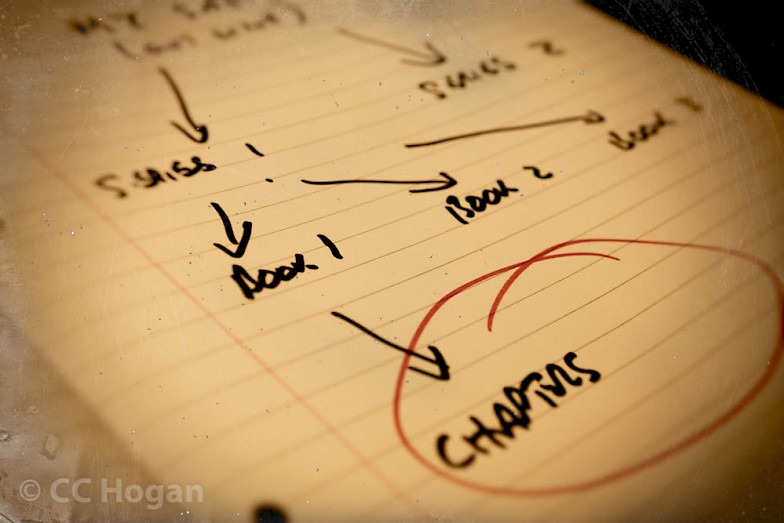 MY
Series 2
Series 1
Book 3
Book 2
Book 1
CHAPTERS
© CC Hogan